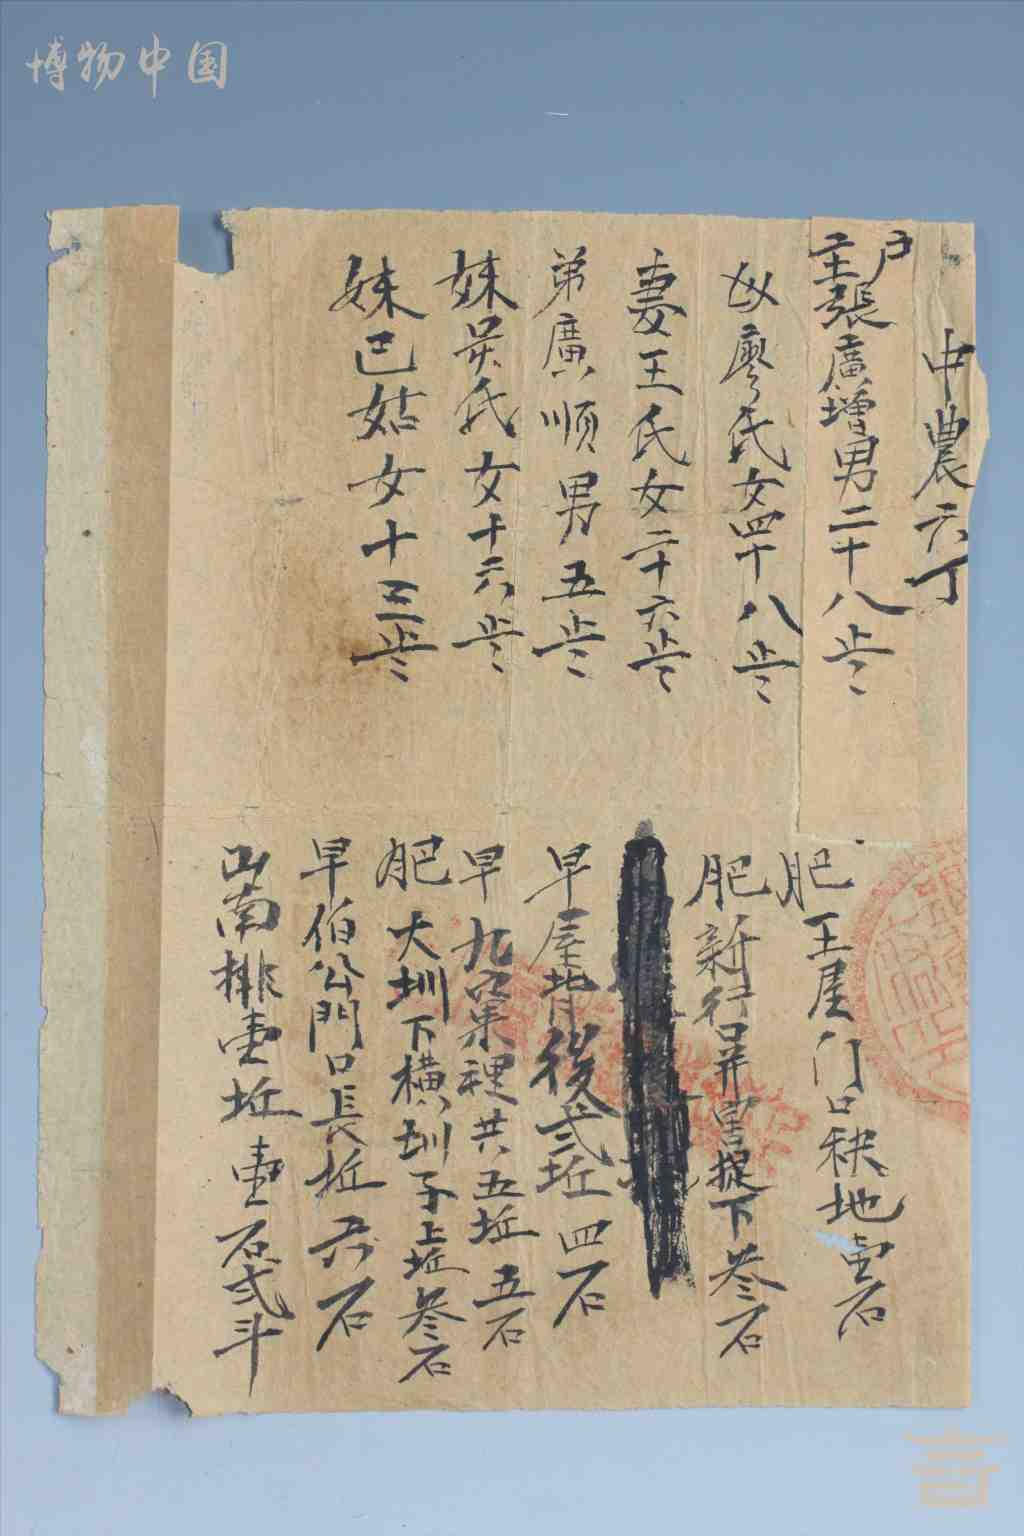 博物中国
中農六丁
户主張廣增男二十八歲
母廖氏女四十八歲
妻王氏女二十六歲
弟廣順男五歲
妹吴氏女十六歲
妹已姑女十三歲
肥王屋门口秧地壹石
肥新行口井里堤下叁石
早屋背後弍坵四石
早九窠裡共五坵五石
肥大圳下橫圳子上坵叁石
早伯公門口長坵六石
山南排壹坵壹石弍斗